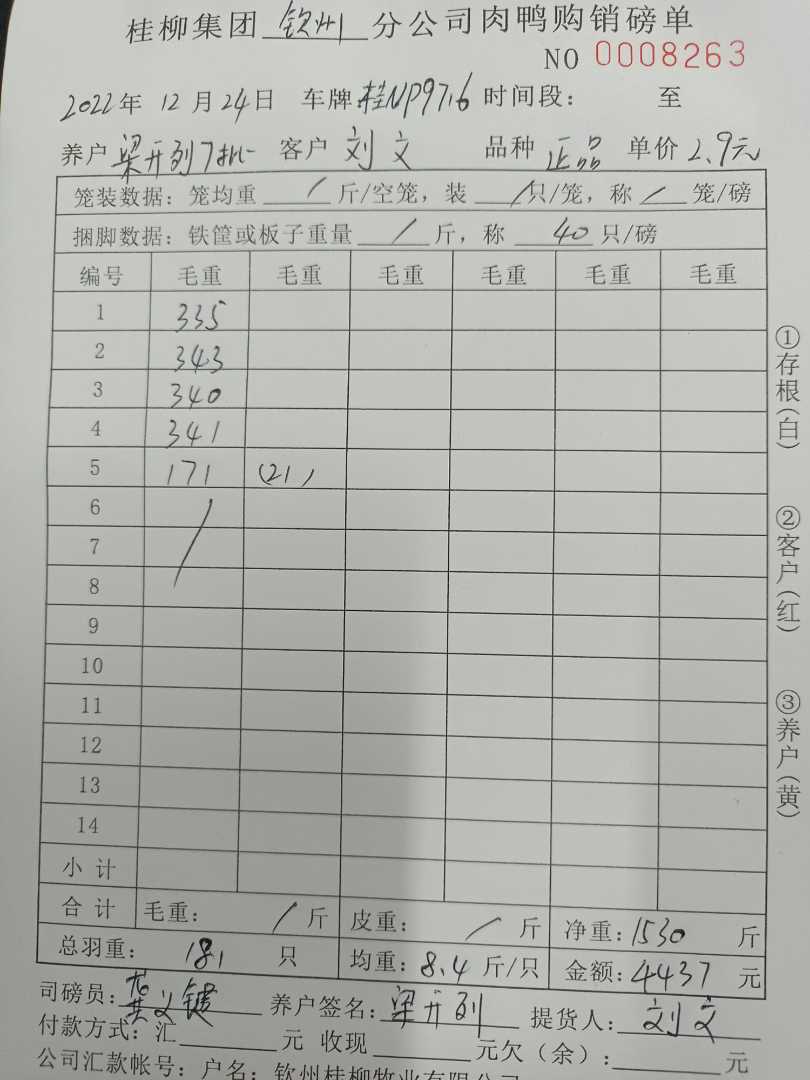 桂柳集团 钦州 分公司肉鸭购销磅单
NO 0008263
2022年 12月24日 车牌 桂NP9716 时间段： 至
养户 梁开列 客户 刘文 品种 正品 单价 2.9元
笼装数据：笼均重 / 斤/空笼，装 / 只/笼，称 / 笼/磅
捆脚数据：铁筐或板子重量 / 斤，称 40 只/磅
编号 毛重 毛重 毛重 毛重 毛重 毛重
1 335
2 343
3 340
4 341
5 171 (21)
6 /
7
8
9
10
11
12
13
14
小计
合计 毛重： / 斤 皮重： / 斤 净重：1530 斤
总羽重： 181 只 均重：8.4 斤/只 金额：4437 元
司磅员： 养户签名：梁开列 提货人：刘文
付款方式：汇 元 收现 元欠（余）： 元
公司汇款帐号：户名：钦州桂柳牧业有限公司
①存根（白）
②客户（红）
③养户（黄）